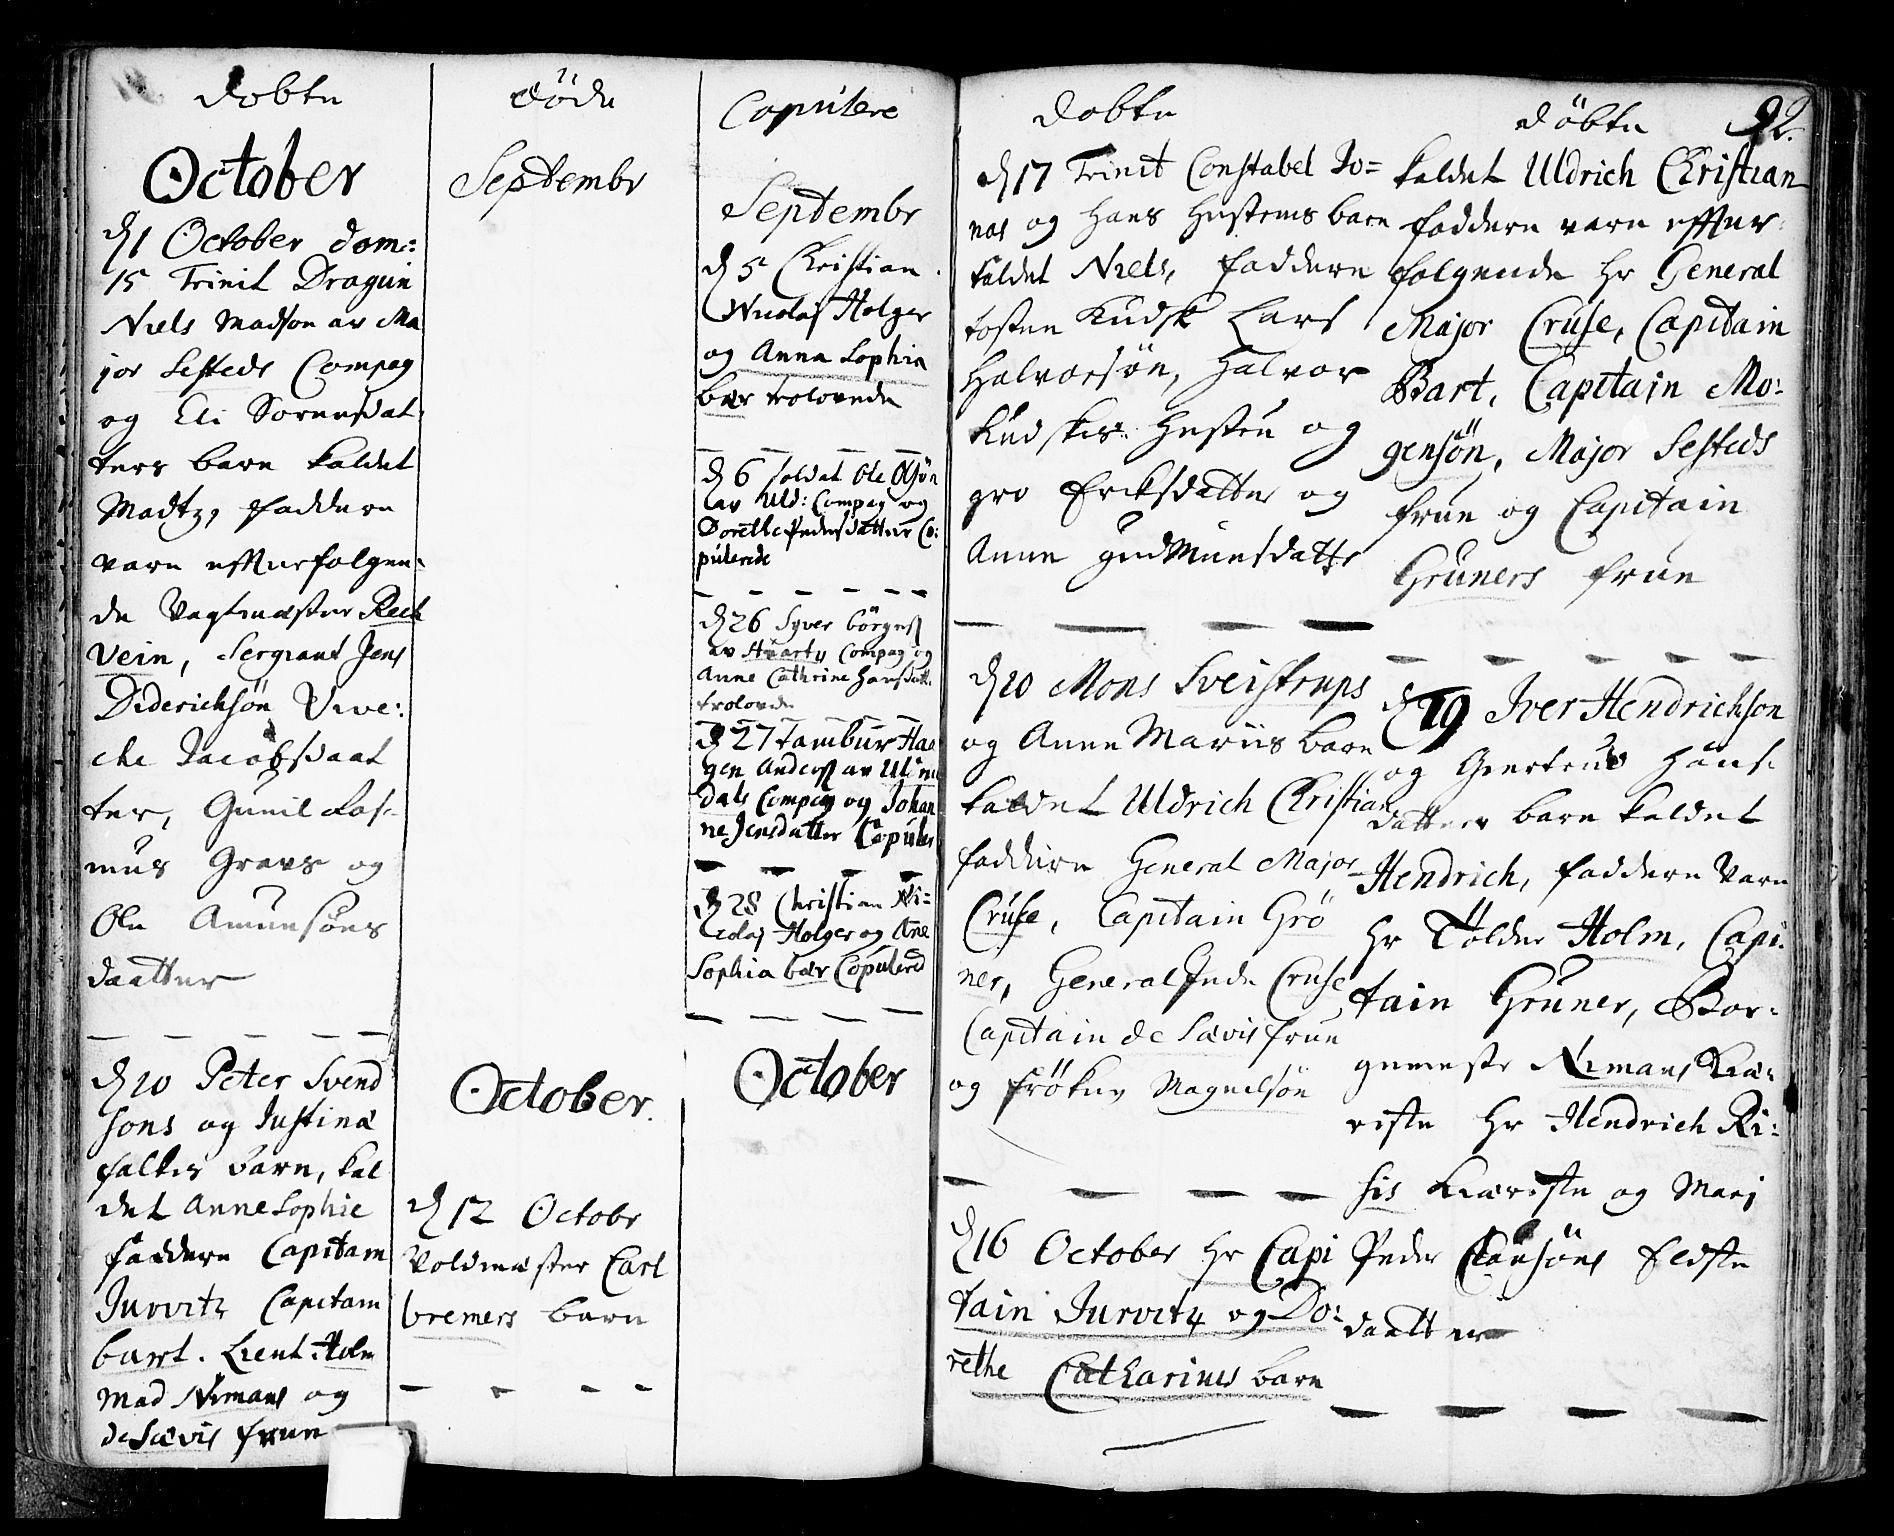 Döbte
October
d 1 October Dom:
15 Trinit Dragun
Niels Madson av Ma
jor Sesteds Compag
og Eli Sörensdat
ters barn kaldet
Madtz, faddere
vare effterfölgen-
de Vagtmester Rech
Vein, Sergeant Jens
Diderichsön Vive:
che Jacobsdaat
ter, Gunil Ras-
mus Gravs og
Ole Amunsöns
daatter
d 10 Peter Svend
sons og Justina
falkes barn, kal
det Anne Sophie
faddere Capitain
Jurvitz Capitain
bart. Lieut: Holm
Mad Nimans og
de Sævis frue
Döde
Septembr
October.
d 12 Octobr
Voldmester Carl
bremers barn
Copulere
Septembr
d 5 Christian
Nicolaj Holger
og Anna Sophia
bær trolovede
d 6 soldat Ole Olsön
av Uld: Compag og
Dorethe Pedersdatter Co:
pulerede
d 26 Syver börges
av Stuarty Compag og
Anne Cathrine Hansdatt.
trolovede
d 27 tambur Haa
gen Anders av
dals Compag og Johan
ne Jensdatter Copuler
d 28 Christian Ni=
colaj Holger og Ane
Sophia bær Copulered
October
Döbte
d 17 Trinit Constabel Jo=
nas og hans Hustrues barn
kaldet Niels, faddere
tosten Kudsk Lars
Halvorsön, Halvor
Kudskes Hustru og
gro Ericksdatter og
Anne Gudmunsdatter
d 10 Mons Sveistrups
og Anne Mariis barn
kaldet Uldrich Christian
faddere General Major
Cruse, Capitain Grö
ner, General Inde Cruse
Capitain de Sævis frue
og fröken Magnelsön
d 16 October Hr Capi
tain Jurvitz og Do:
rethe Catharines barn
Döbte 92.
kaldet Uldrich Christian
faddere vare effter-
fölgende Hr General
Major Cruse, Capitain
Bart, Capitain Mo:
gensön, Major Sesteds
frue og Capitain
Gruners frue
d 19 Iver Hendrichson
og Giertrud Hans-
datters barn kaldet
Hendrich, faddere vare
Hr Tolder Holm, Capi-
tain Gruner, Bor-
gemester Nimans Kiæ-
riste Hr Hendrich Ri:
sis Kiæriste og Marj
Peder Clausöns Eldste
daatter